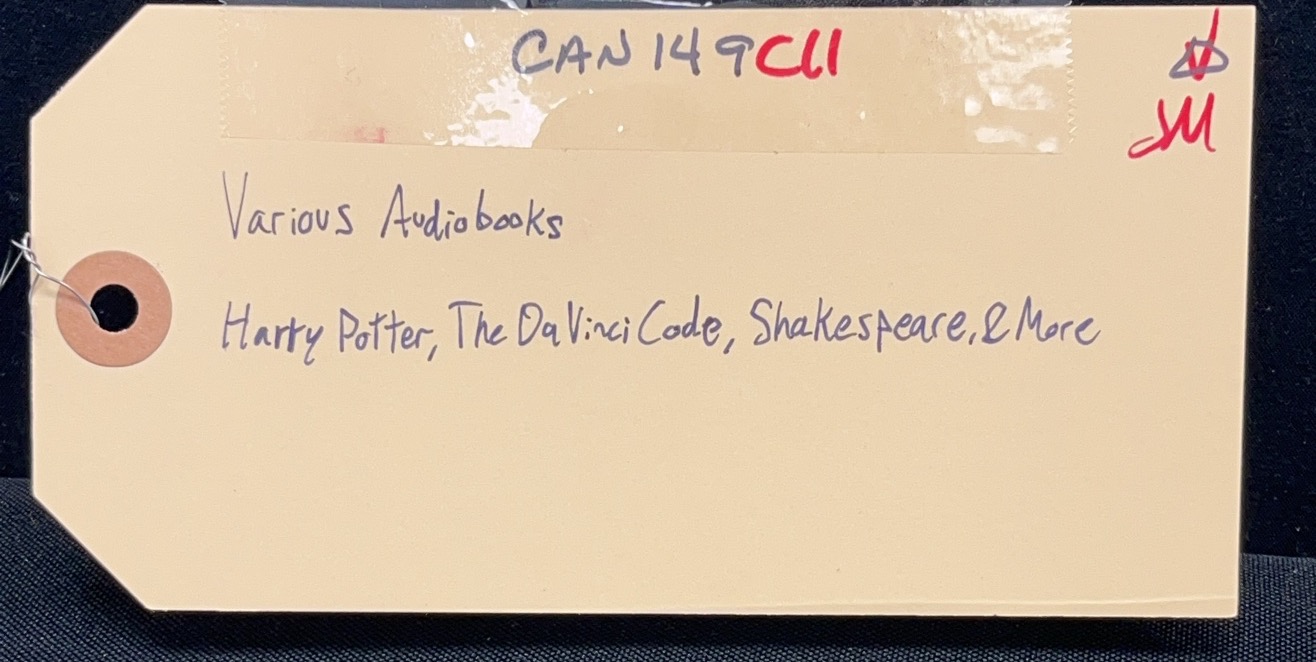 CAN 149 C11
Various Audiobooks
Harry Potter, The Da Vinci Code, Shakespeare, & More